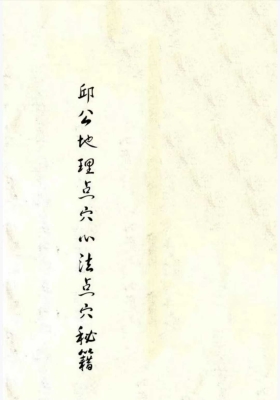 邱公地理点穴心法点穴秘籍